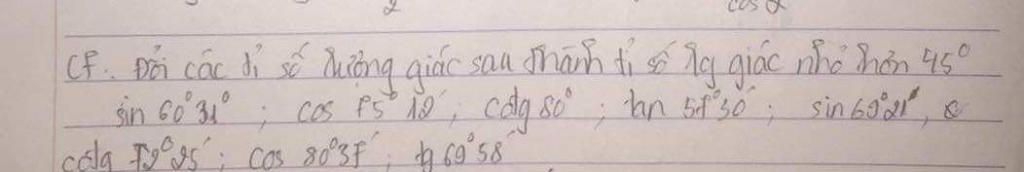 2 cos α
CF. Đổi các tỉ số lượng giác sau thành tỉ số lg giác nhỏ hơn 45°
sin 60°31°; cos 75°12'; cotg 80°; tan 57°30'; sin 69°21',
cotg 72°25'; cos 80°37'; tg 69°58'